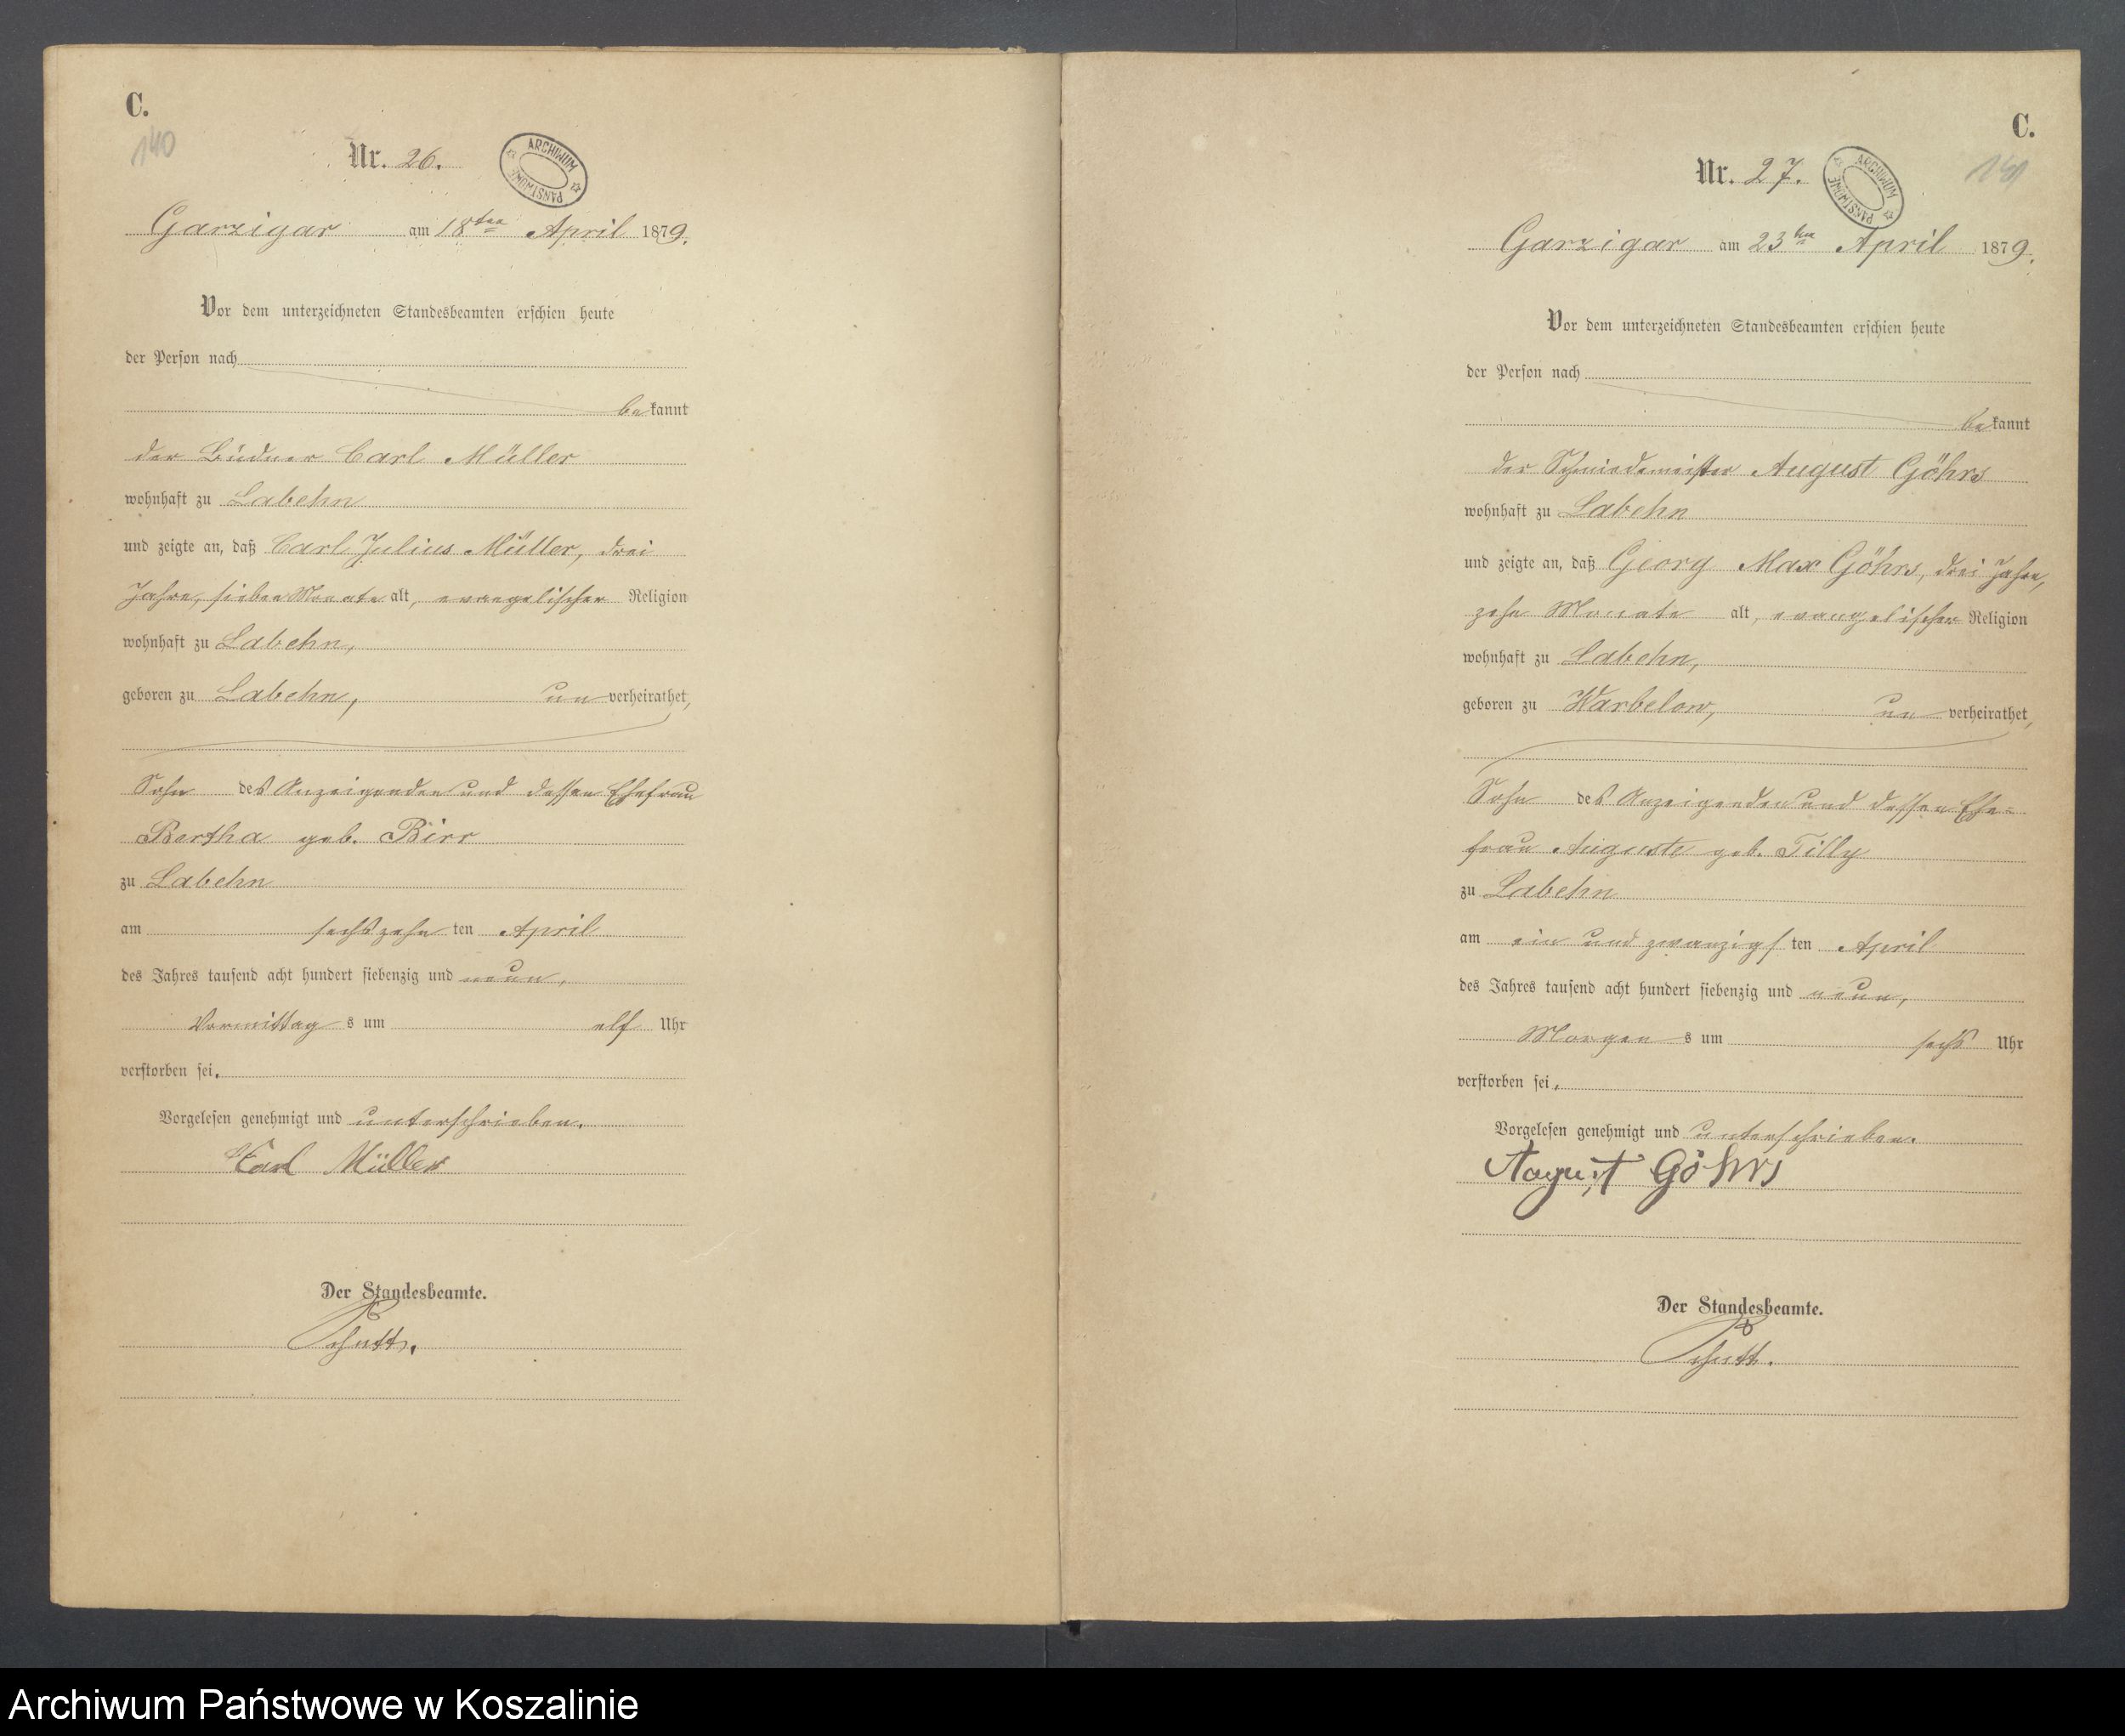 C.
140
Nr. 26.
ARCHIWUM PAŃSTWOWE
Garzigar am 18ten April 1879.
Vor dem unterzeichneten Standesbeamten erschien heute
der Person nach
bekannt
der Büdner Carl Müller
wohnhaft zu Labehn
und zeigte an, daß Carl Julius Müller, drei
Jahre, sieben Monate alt, evangelischer Religion
wohnhaft zu Labehn,
geboren zu Labehn, unverheirathet,
Sohn des Anzeigenden und dessen Ehefrau
Bertha geb. Birr
zu Labehn
am sechszehnten April
des Jahres tausend acht hundert siebenzig und neun,
Vormittags um elf Uhr
verstorben sei.
Vorgelesen genehmigt und unterschrieben.
Karl Müller
Der Standesbeamte.
C.
Nr. 27.
ARCHIWUM PAŃSTWOWE
Garzigar am 23ten April 1879.
Vor dem unterzeichneten Standesbeamten erschien heute
der Person nach
bekannt
der Schmiedemeister August Göhrs
wohnhaft zu Labehn
und zeigte an, daß Georg Max Göhrs, drei Jahre,
zehn Monate alt, evangelischer Religion
wohnhaft zu Labehn,
geboren zu Warbelow, unverheirathet,
Sohn des Anzeigenden und dessen Ehe-
frau Auguste geb. Tilly
zu Labehn
am ein und zwanzigsten April
des Jahres tausend acht hundert siebenzig und neun,
Morgens um sechs Uhr
verstorben sei.
Vorgelesen genehmigt und unterschrieben.
August Göhrs
Der Standesbeamte.
Archiwum Państwowe w Koszalinie